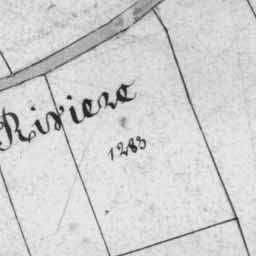 Riviere
1283